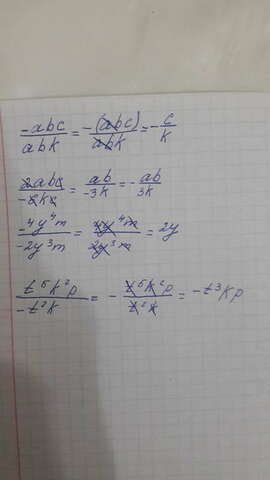 -abc/abk = -(abc)/abk = -c/k
2abc/-6kc = ab/-3k = -ab/3k
-4y⁴m/-2y³m = 4y⁴m/2y³m = 2y
t⁵k²p/-t²k = -t⁵k²p/t²k = -t³kp